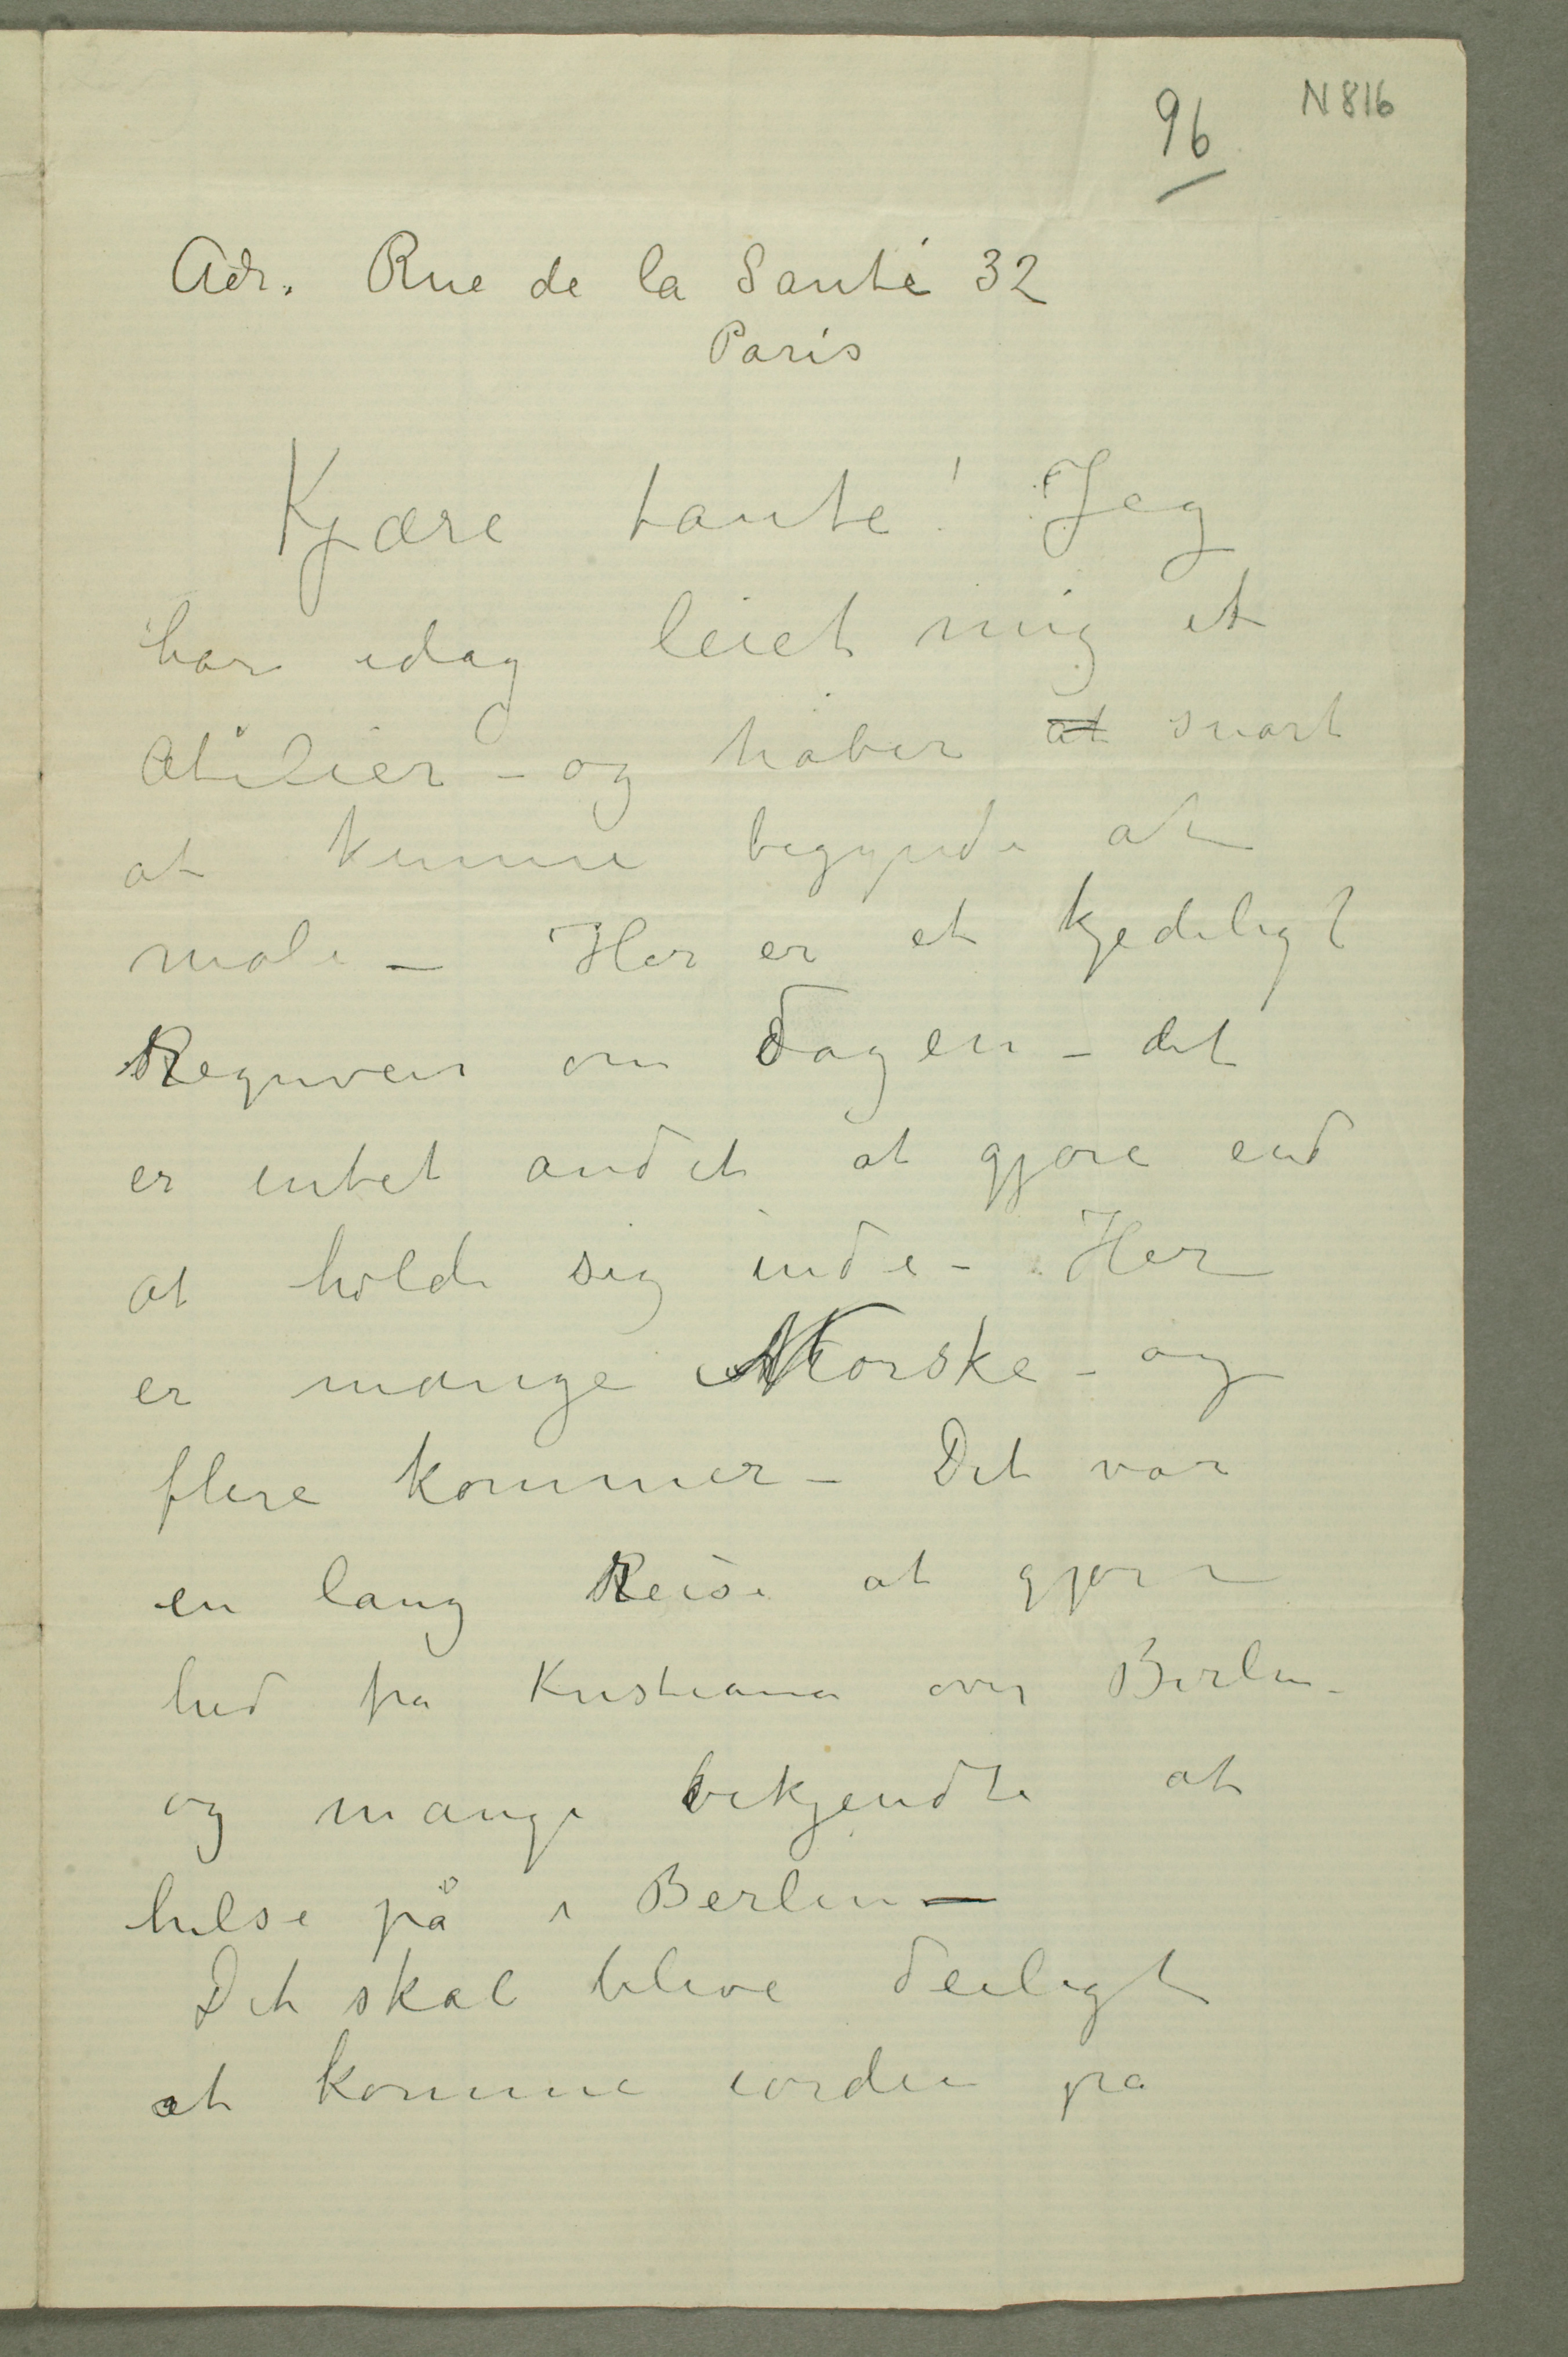 96 N 816
Adr. Rue de la Santé 32
Paris
Kjære tante! Jeg
har idag leiet mig et
Atelier – og håber at snart
at kunne begynde at
male – Her er et kjedeligt
Regnveir om dagen – det
er intet andet at gjøre end
at holde sig inde – Her
er mange Norske – og
flere kommer – Det var
en lang Reise at gjøre
hid fra Kristiania over Berlin –
og mange bekjendte at
hilse på i Berlin –
Det skal blive deiligt
at komme iorden på